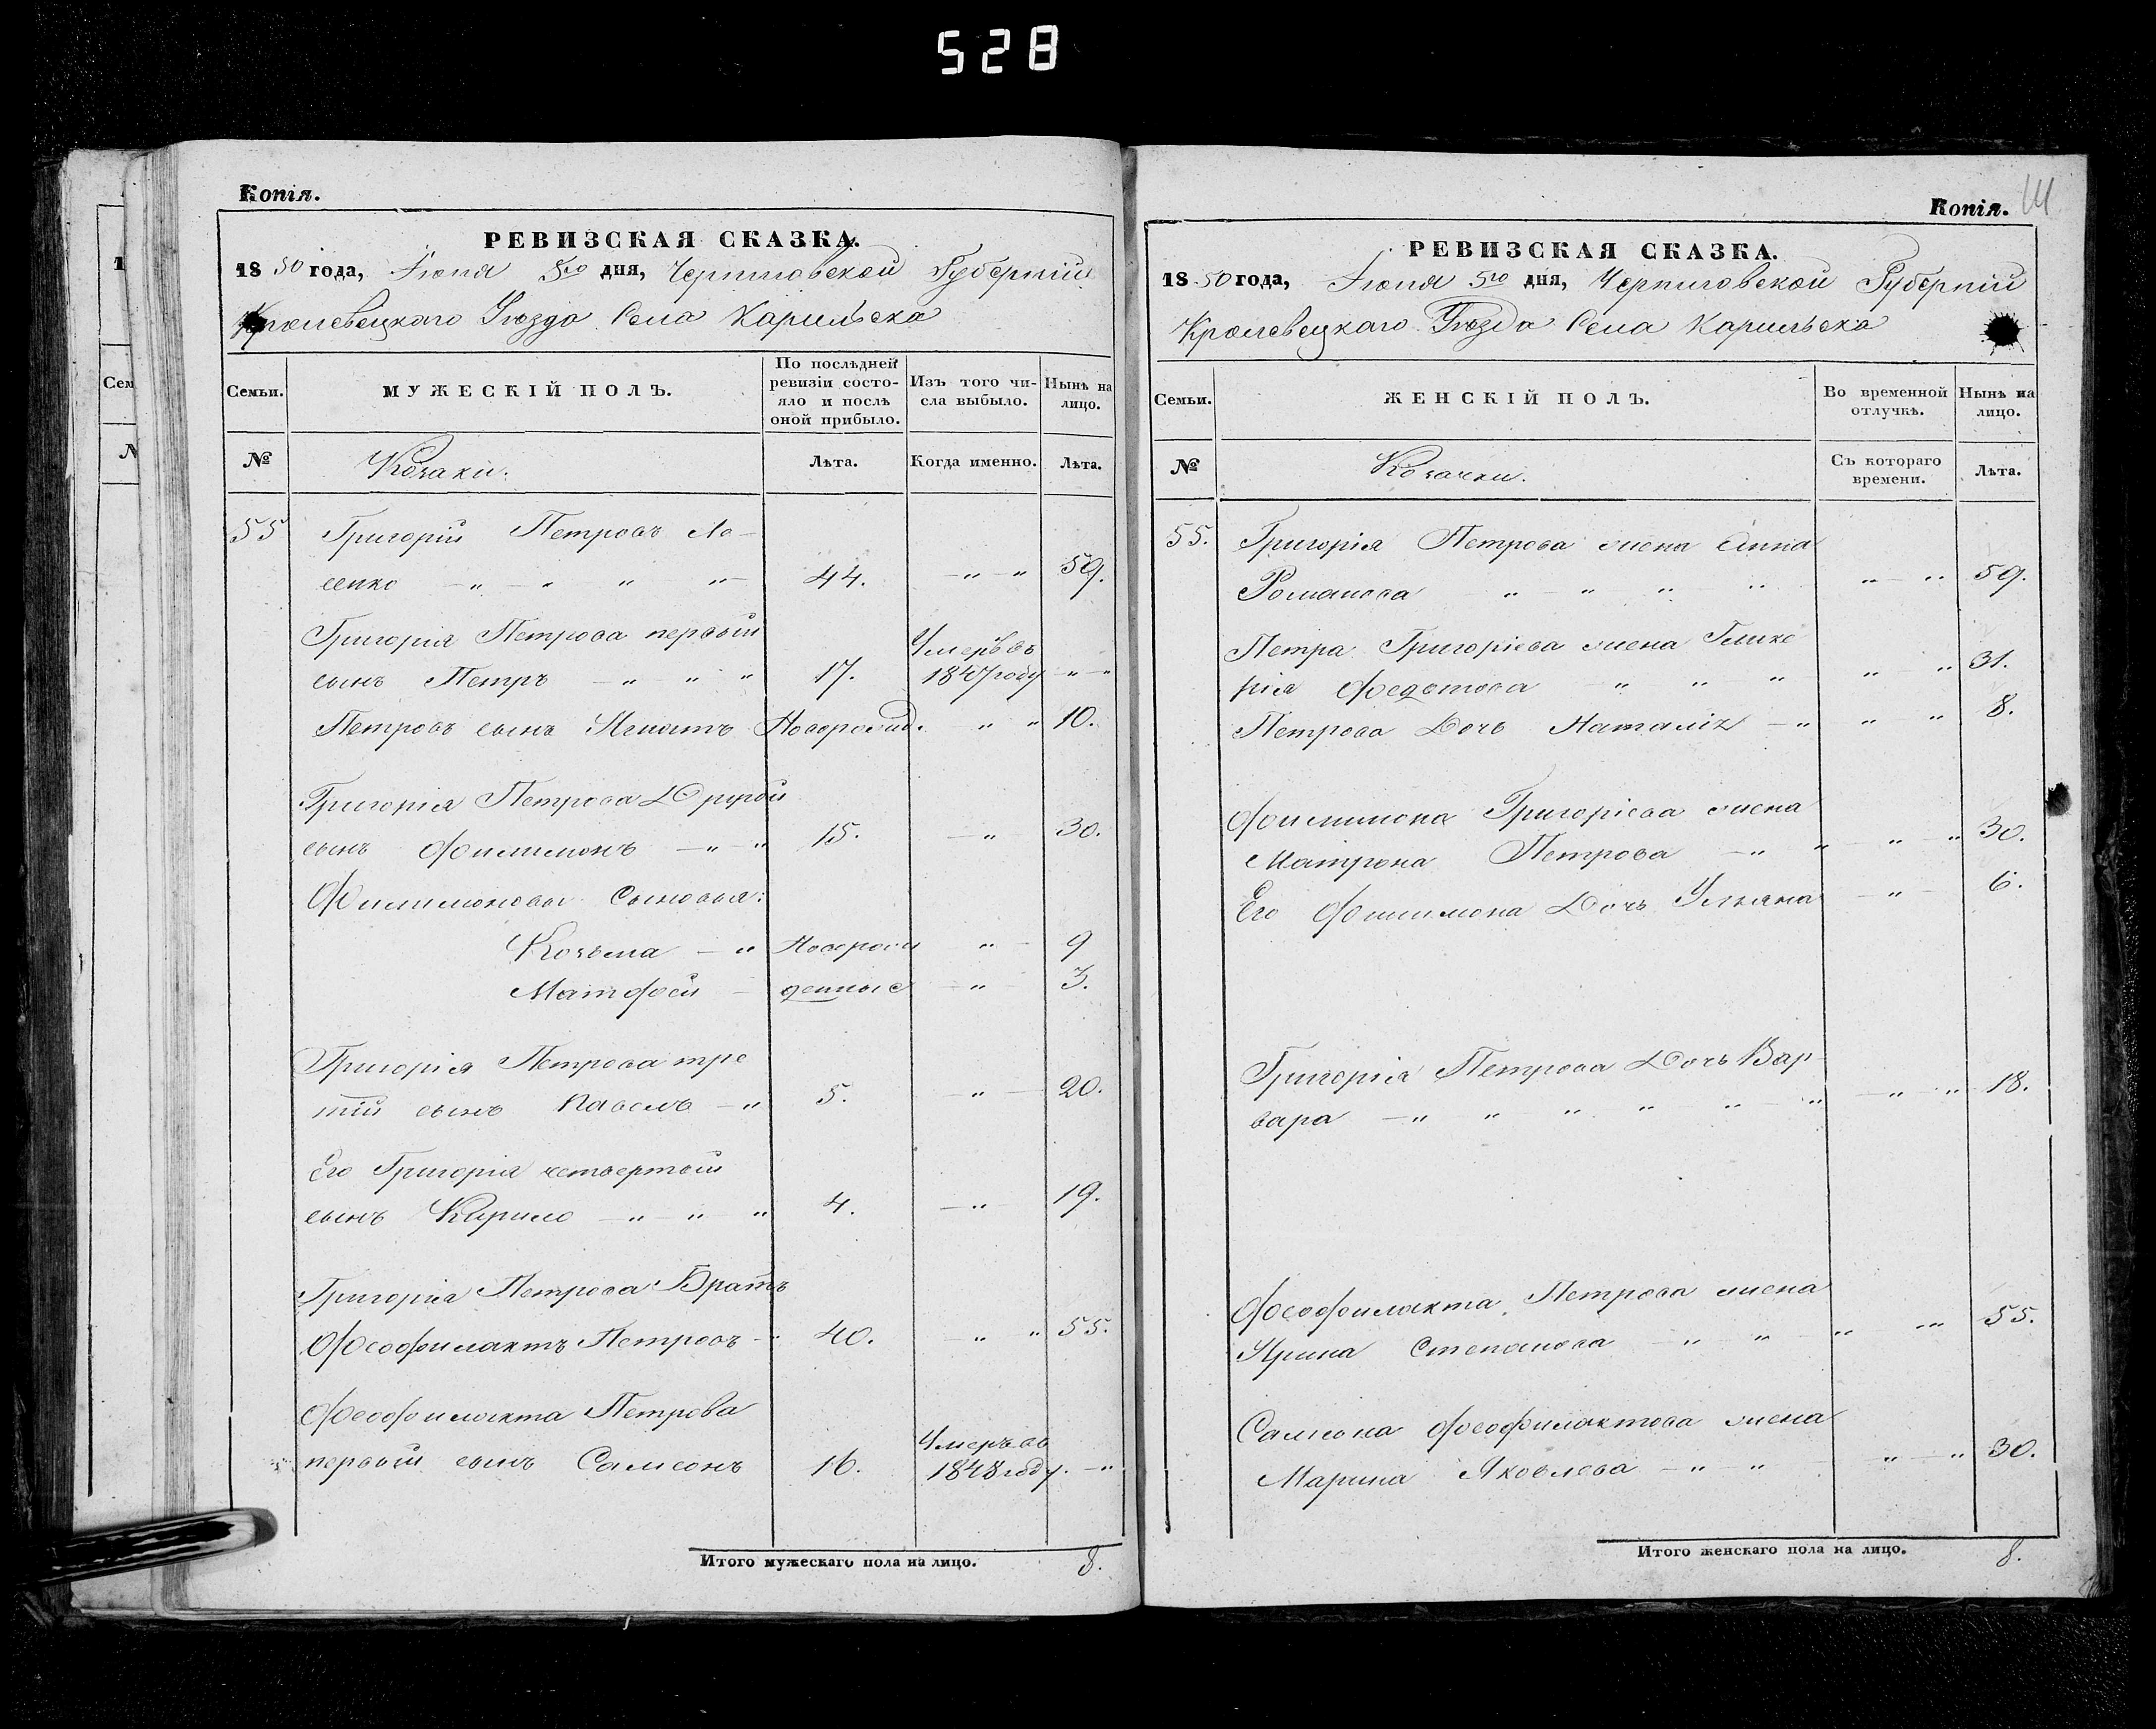 528
Копія.
РЕВИЗСКАЯ СКАЗКА.
1850 года, Іюня 5го дня, Черниговской Губерніи
Кролевецкаго Уѣзда Села Карильска
Семьи.
МУЖЕСКІЙ ПОЛЪ.
По послѣдней ревизіи состояло и послѣ оной прибыло.
Изъ того числа выбыло.
Нынѣ на лицо.
№
Козаки:
Лѣта.
Когда именно.
Лѣта.
55 Григорій Петровъ Ло-
сенко — „ — „ „ „ — 44. — „ — „ 59.
Григорія Петрова первый
Умеръ въ
сынъ Петръ — „ „ „ 17. 1847 году — „ — „
Петровъ сынъ Игнатъ Новорожд. „ „ 10.
Григорія Петрова Другой
сынъ Филимонъ — „ — „ 15. — „ 30.
Филимоновы Сыновья:
Козьма — „Новорож „ 9
Матфей — денные — „ 3.
Григорія Петрова тре
тій сынъ Павелъ — „ 5. — „ — 20.
Его Григорія четвертый
сынъ Кирило — „ „ „ 4. — „ 19.
Григорія Петрова Братъ
Феофилактъ Петровъ — „ 40. — „ „ 55.
Феофилакта Петрова
Умеръ въ
первый сынъ Самсонъ 16. 1848 году. — „
Итого мужескаго пола на лицо. 8.
Копія. 111
РЕВИЗСКАЯ СКАЗКА.
1850 года, Іюня 5го дня, Черниговской Губерній
Кролевецкаго Уѣзда Села Карильска
Семьи.
ЖЕНСКІЙ ПОЛЪ.
Во временной отлучкѣ.
Нынѣ на лицо.
№
Козачки.
Съ котораго времени.
Лѣта.
55. Григорія Петрова жена Анна
Романова „ — „ „ „ „ — „ 59.
Петра Григоріева жена Глике
рія Федотова — „ „ „ „ „ 31.
Петрова Дочь Наталія — „ „ „ 8.
Филимона Григоріева жена
Матрона Петрова — „ „ „ „ 30.
Его Филимона Дочь Ульяна — „ 6.
Григорія Петрова Дочь Вар-
вара — „ „ „ „ „ „ — „ — „ 18.
Феофилакта Петрова жена
Ирина Степанова — „ „ — „ „ 55.
Самсона Феофилактова жена
Марина Яковлева — „ „ „ — „ 30.
Итого женскаго пола на лицо. 8.